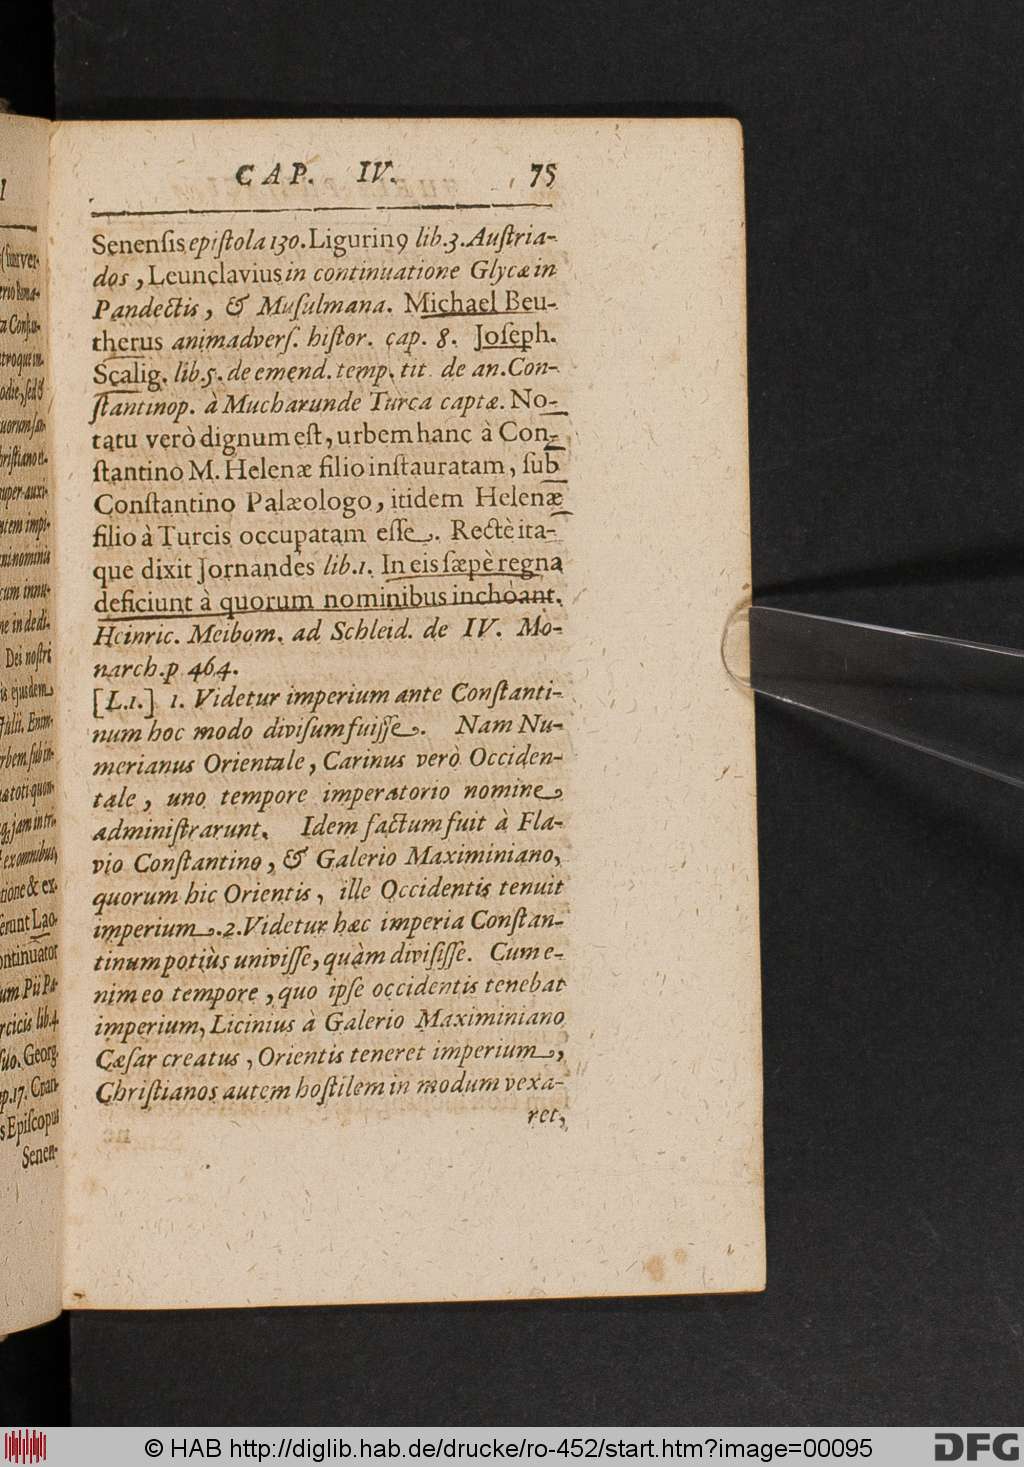 CAP. IV. 75
Senenſis epiſtola 130. Ligurin9 lib.3. Auſtria-
dos, Leunclavius in continuatione Glycæ in
Pandectis, & Muſulmana. Michael Beu-
therus animadverſ. hiſtor. cap. 8. Joſeph.
Scalig. lib.5. de emend. temp. tit. de an. Con-
ſtantinop. à Mucharunde Turca captæ. No-
tatu verò dignum eſt, urbem hanc à Con-
ſtantino M. Helenæ filio inſtauratam, ſub
Conſtantino Palæologo, itidem Helenæ
filio à Turcis occupatam eſſe. Rectè ita-
que dixit Jornandes lib.1. In eis ſæpè regna
deficiunt à quorum nominibus inchòant.
Heinric. Meibom. ad Schleid. de IV. Mo-
narch. p. 464.
[L.1.] 1. Videtur imperium ante Conſtanti-
num hoc modo diviſum fuiſſe. Nam Nu-
merianus Orientale, Carinus verò Occiden-
tale, uno tempore imperatorio nomine
adminiſtrarunt. Idem factum fuit à Fla-
vio Conſtantino, & Galerio Maximiniano,
quorum hic Orientis, ille Occidentis tenuit
imperium. 2. Videtur hæc imperia Conſtan-
tinum potiùs univiſſe, quàm diviſiſſe. Cum e-
nim eo tempore, quo ipſe occidentis tenebat
imperium, Licinius à Galerio Maximiniano
Cæſar creatus, Orientis teneret imperium,
Chriſtianos autem hoſtilem in modum vexa-
ret,
© HAB http://diglib.hab.de/drucke/ro-452/start.htm?image=00095
DFG